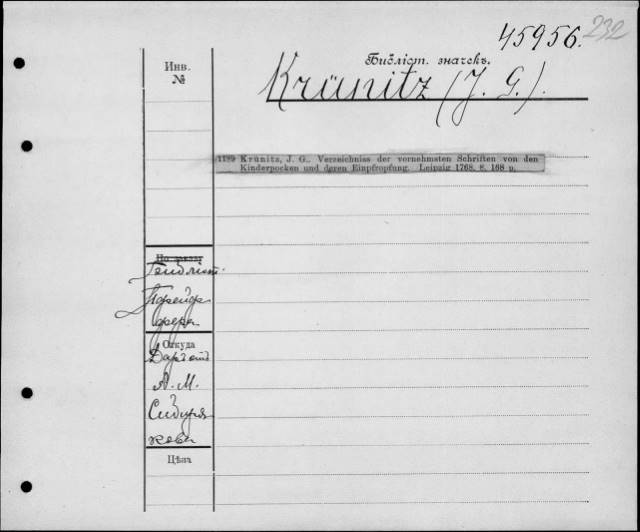 45956. 232
Библіот. значекъ.
Инв.
№
Krünitz (J. G.).
1189 Krünitz, J. G., Verzeichniss der vornehmsten Schriften von den
Kinderpocken und deren Einpfropfung. Leipzig 1768. 8. 168 p.
По заказу
Откуда
Даръ отъ
А. М.
Сибиря
кова
Цѣна